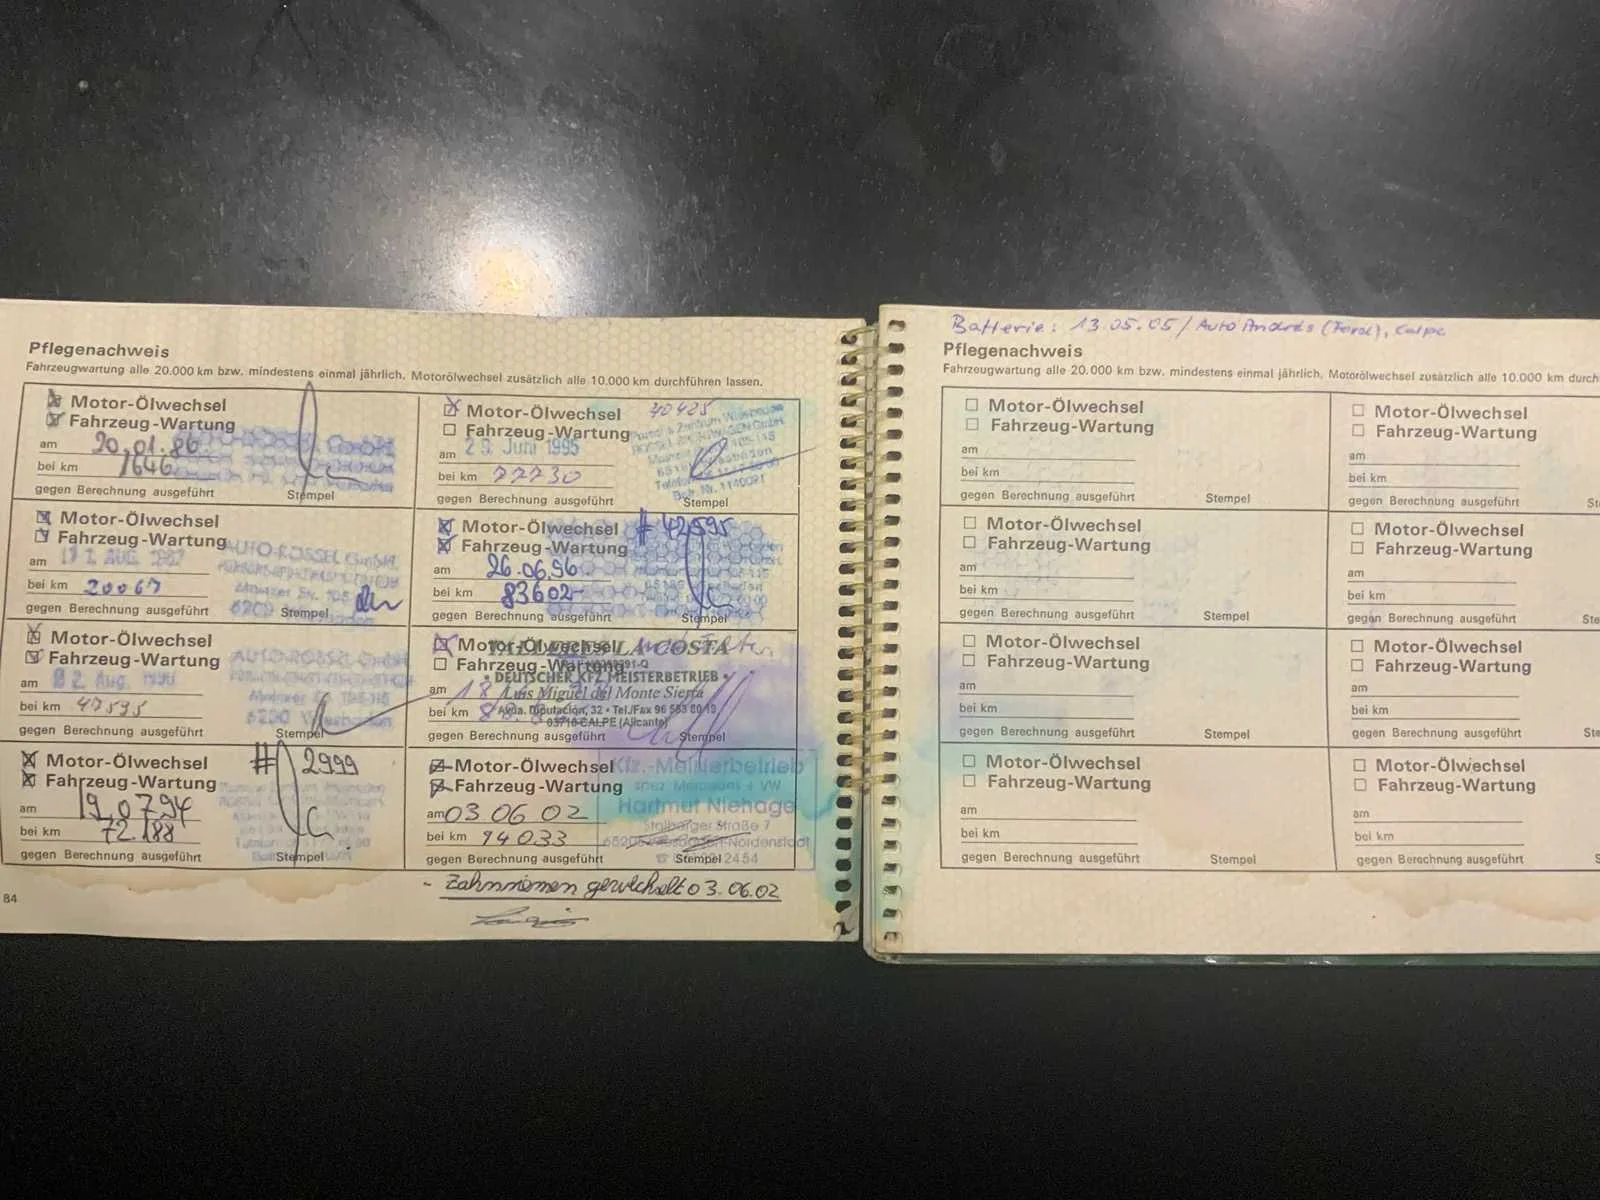 Pflegenachweis
Fahrzeugwartung alle 20.000 km bzw. mindestens einmal jährlich, Motorölwechsel zusätzlich alle 10.000 km durchführen lassen.
Motor-Ölwechsel
Fahrzeug-Wartung
am 20.01.86
bei km 7646
gegen Berechnung ausgeführt Stempel
Motor-Ölwechsel
Fahrzeug-Wartung
AUTO-ROSSEL GmbH
am AUG. 1987
bei km 20067
gegen Berechnung ausgeführt Stempel
Motor-Ölwechsel
Fahrzeug-Wartung
AUTO-ROSSEL GmbH
am 02 Aug.
bei km 47595
6200 Wiesbaden
gegen Berechnung ausgeführt Stempel
Motor-Ölwechsel # 2999
Fahrzeug-Wartung
am 19.07.94
bei km 72.188
gegen Berechnung ausgeführt Stempel
84
Motor-Ölwechsel 40425
Fahrzeug-Wartung
am 29. Juni 1995
bei km 77730
gegen Berechnung ausgeführt Stempel
Motor-Ölwechsel # 42595
Fahrzeug-Wartung
am 26.06.96
bei km 83602
gegen Berechnung ausgeführt Stempel
Motor-Ölwechsel
TALLERES LA COSTA
Fahrzeug-Wartung
• DEUTSCHER KFZ MEISTERBETRIEB •
am 18
Luis Miguel del Monte Sierra
bei km
Avda. Diputación, 32 • Tel./Fax 96 583 80 19
03710 CALPE (Alicante)
gegen Berechnung ausgeführt Stempel
Motor-Ölwechsel
Kfz.-Meisterbetrieb
Fahrzeug-Wartung
Hartmut Niehage
am 03 06 02
Stolberger Straße 7
bei km 94033
gegen Berechnung ausgeführt Stempel 2454
- Zahnriemen gewechselt 03.06.02
Batterie: 13.05.05 / Auto Andrés (Ford), Calpe
Pflegenachweis
Fahrzeugwartung alle 20.000 km bzw. mindestens einmal jährlich, Motorölwechsel zusätzlich alle 10.000 km durch
Motor-Ölwechsel
Fahrzeug-Wartung
am
bei km
gegen Berechnung ausgeführt Stempel
Motor-Ölwechsel
Fahrzeug-Wartung
am
bei km
gegen Berechnung ausgeführt Stempel
Motor-Ölwechsel
Fahrzeug-Wartung
am
bei km
gegen Berechnung ausgeführt Stempel
Motor-Ölwechsel
Fahrzeug-Wartung
am
bei km
gegen Berechnung ausgeführt Stempel
Motor-Ölwechsel
Fahrzeug-Wartung
am
bei km
gegen Berechnung ausgeführt St
Motor-Ölwechsel
Fahrzeug-Wartung
am
bei km
gegen Berechnung ausgeführt Ste
Motor-Ölwechsel
Fahrzeug-Wartung
am
bei km
gegen Berechnung ausgeführt Ste
Motor-Ölwechsel
Fahrzeug-Wartung
am
bei km
gegen Berechnung ausgeführt S